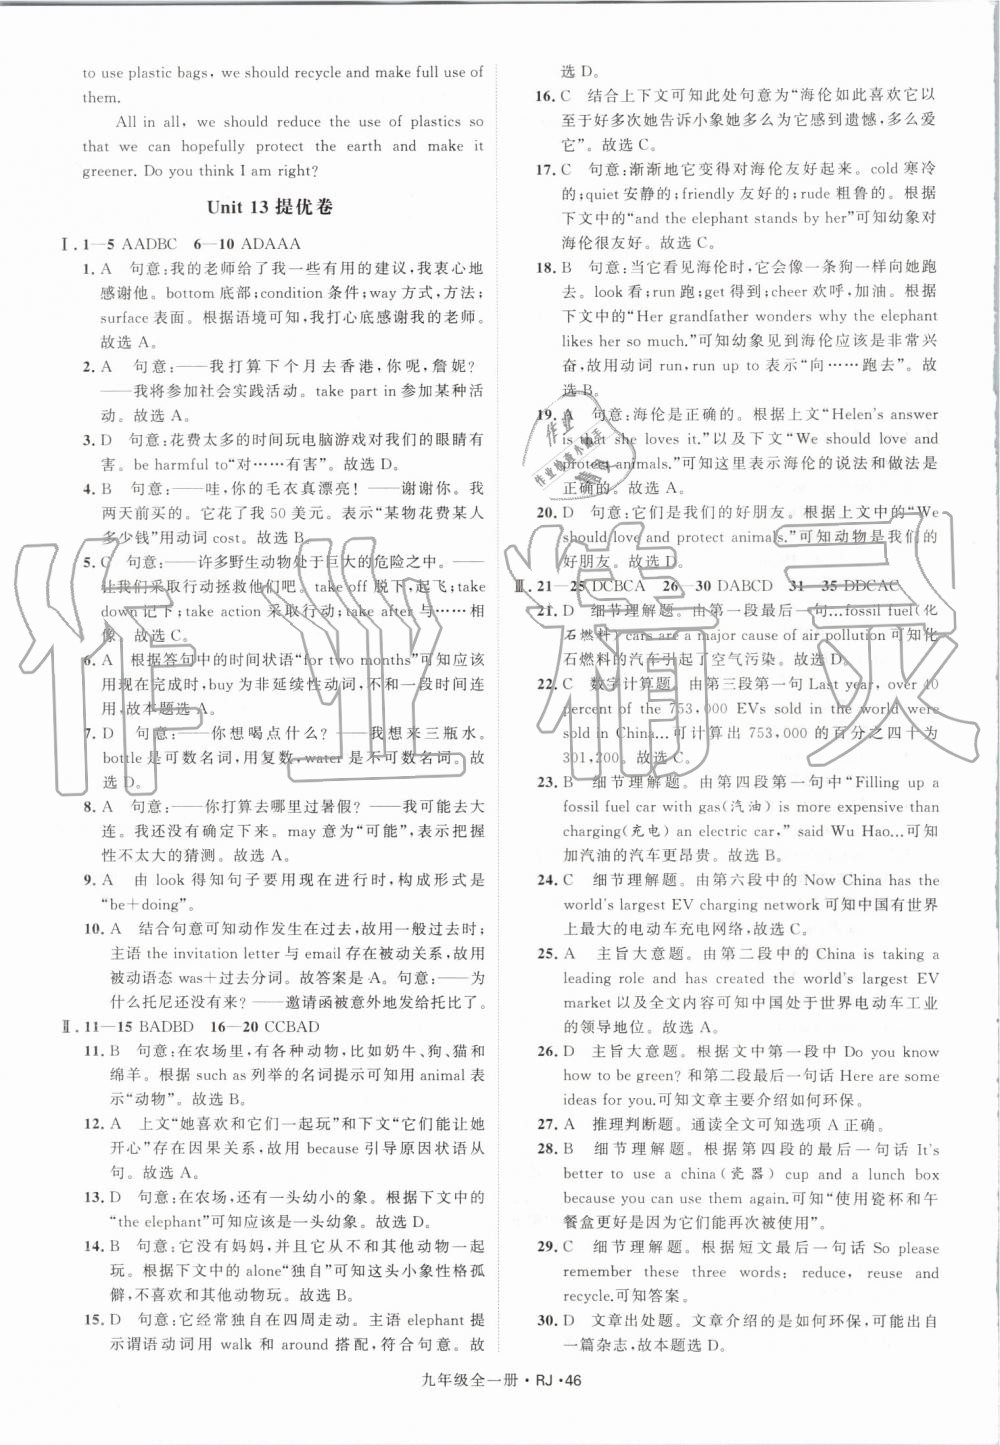 to use plastic bags, we should recycle and make full use of
them.
All in all, we should reduce the use of plastics so
that we can hopefully protect the earth and make it
greener. Do you think I am right?
Unit 13提优卷
Ⅰ. 1—5 AADBC 6—10 ADAAA
1. A 句意:我的老师给了我一些有用的建议,我衷心地
感谢他。bottom 底部;condition 条件;way 方式,方法;
surface 表面。根据语境可知,我打心底感谢我的老师。
故选 A。
2. A 句意:——我打算下个月去香港,你呢,詹妮?
——我将参加社会实践活动。take part in 参加某种活
动。故选 A。
3. D 句意:花费太多的时间玩电脑游戏对我们的眼睛有
害。be harmful to“对……有害”。故选 D。
4. B 句意:——哇,你的毛衣真漂亮!——谢谢你。我
两天前买的。它花了我 50 美元。表示“某物花费某人
多少钱”用动词 cost。故选 B。
5. C 句意:——许多野生动物处于巨大的危险之中。——
让我们采取行动拯救他们吧。take off 脱下,起飞;take
down 记下;take action 采取行动;take after 与……相
像。故选 C。
6. A 根据答句中的时间状语“for two months”可知应该
用现在完成时,buy 为非延续性动词,不和一段时间连
用,故本题选 A。
7. D 句意:——你想喝点什么?——我想来三瓶水。
bottle 是可数名词,用复数,water 是不可数名词。故
选 D。
8. A 句意:——你打算去哪里过暑假?——我可能去大
连。我还没有确定下来。may 意为“可能”,表示把握
性不太大的猜测。故选 A。
9. A 由 look 得知句子要用现在进行时,构成形式是
“be+doing”。
10. A 结合句意可知动作发生在过去,故用一般过去时;
主语 the invitation letter 与 email 存在被动关系,故用
被动语态 was+过去分词。故答案是 A。句意:——为
什么托尼还没有来呢?——邀请函被意外地发给托比了。
Ⅱ. 11—15 BADBD 16—20 CCBAD
11. B 句意:在农场里,有各种动物,比如奶牛、狗、猫和
绵羊。根据 such as 列举的名词提示可知用 animal 表
示“动物”。故选 B。
12. A 上文“她喜欢和它们一起玩”和下文“它们能让她
开心”存在因果关系,故用 because 引导原因状语从
句。故选 A。
13. D 句意:在农场,还有一头幼小的象。根据下文中的
“the elephant”可知应该是一头幼象。故选 D。
14. B 句意:它没有妈妈,并且它从不和其他动物一起
玩。根据下文中的 alone“独自”可知这头小象性格孤
僻,不喜欢和其他动物玩。故选 B。
15. D 句意:它经常独自在四周走动。主语 elephant 提
示谓语动词用 walk 和 around 搭配,符合句意。故
选 D。
16. C 结合上下文可知此处句意为“海伦如此喜欢它以
至于好多次她告诉小象她多么为它感到遗憾,多么爱
它”。故选 C。
17. C 句意:渐渐地它变得对海伦友好起来。cold 寒冷
的;quiet 安静的;friendly 友好的;rude 粗鲁的。根据
下文中的“and the elephant stands by her”可知幼象对
海伦很友好。故选 C。
18. B 句意:当它看见海伦时,它会像一条狗一样向她跑
去。look 看;run 跑;get 得到;cheer 欢呼,加油。根据
下文中的“Her grandfather wonders why the elephant
likes her so much.”可知幼象见到海伦应该是非常兴
奋,故用动词 run,run up to 表示“向……跑去”。故
选 B。
19. A 句意:海伦是正确的。根据上文“Helen's answer
is that she loves it.”以及下文“We should love and
protect animals.”可知这里表示海伦的说法和做法是
正确的。故选 A。
20. D 句意:它们是我们的好朋友。根据上文中的“We
should love and protect animals.”可知动物是我们的
好朋友。故选 D。
Ⅲ. 21—25 DCBCA 26—30 DABCD 31—35 DDCAC
21. D 细节理解题。由第一段最后一句...fossil fuel(化
石燃料) cars are a major cause of air pollution 可知化
石燃料的汽车引起了空气污染。故选 D。
22. C 数字计算题。由第三段第一句 Last year, over 40
percent of the 753,000 EVs sold in the world were
sold in China...可计算出 753,000 的百分之四十为
301,200。故选 C。
23. B 细节理解题。由第四段第一句中“Filling up a
fossil fuel car with gas(汽油) is more expensive than
charging(充电) an electric car,” said Wu Hao...可知
加汽油的汽车更昂贵。故选 B。
24. C 细节理解题。由第六段中的 Now China has the
world's largest EV charging network 可知中国有世界
上最大的电动车充电网络,故选 C。
25. A 主旨大意题。由第二段中的 China is taking a
leading role and has created the world's largest EV
market 以及全文内容可知中国处于世界电动车工业
的领导地位。故选 A。
26. D 主旨大意题。根据文中第一段中 Do you know
how to be green? 和第二段最后一句话 Here are some
ideas for you.可知文章主要介绍如何环保。
27. A 推理判断题。通读全文可知选项 A 正确。
28. B 细节理解题。根据第四段的最后一句话 It's
better to use a china(瓷器) cup and a lunch box
because you can use them again.可知“使用瓷杯和午
餐盒更好是因为它们能再次被使用”。
29. C 细节理解题。根据短文最后一句话 So please
remember these three words: reduce, reuse and
recycle.可知答案。
30. D 文章出处题。文章介绍的是如何环保,可能出自
一篇杂志,故本题选 D。
作业精灵
九年级全一册·RJ·46